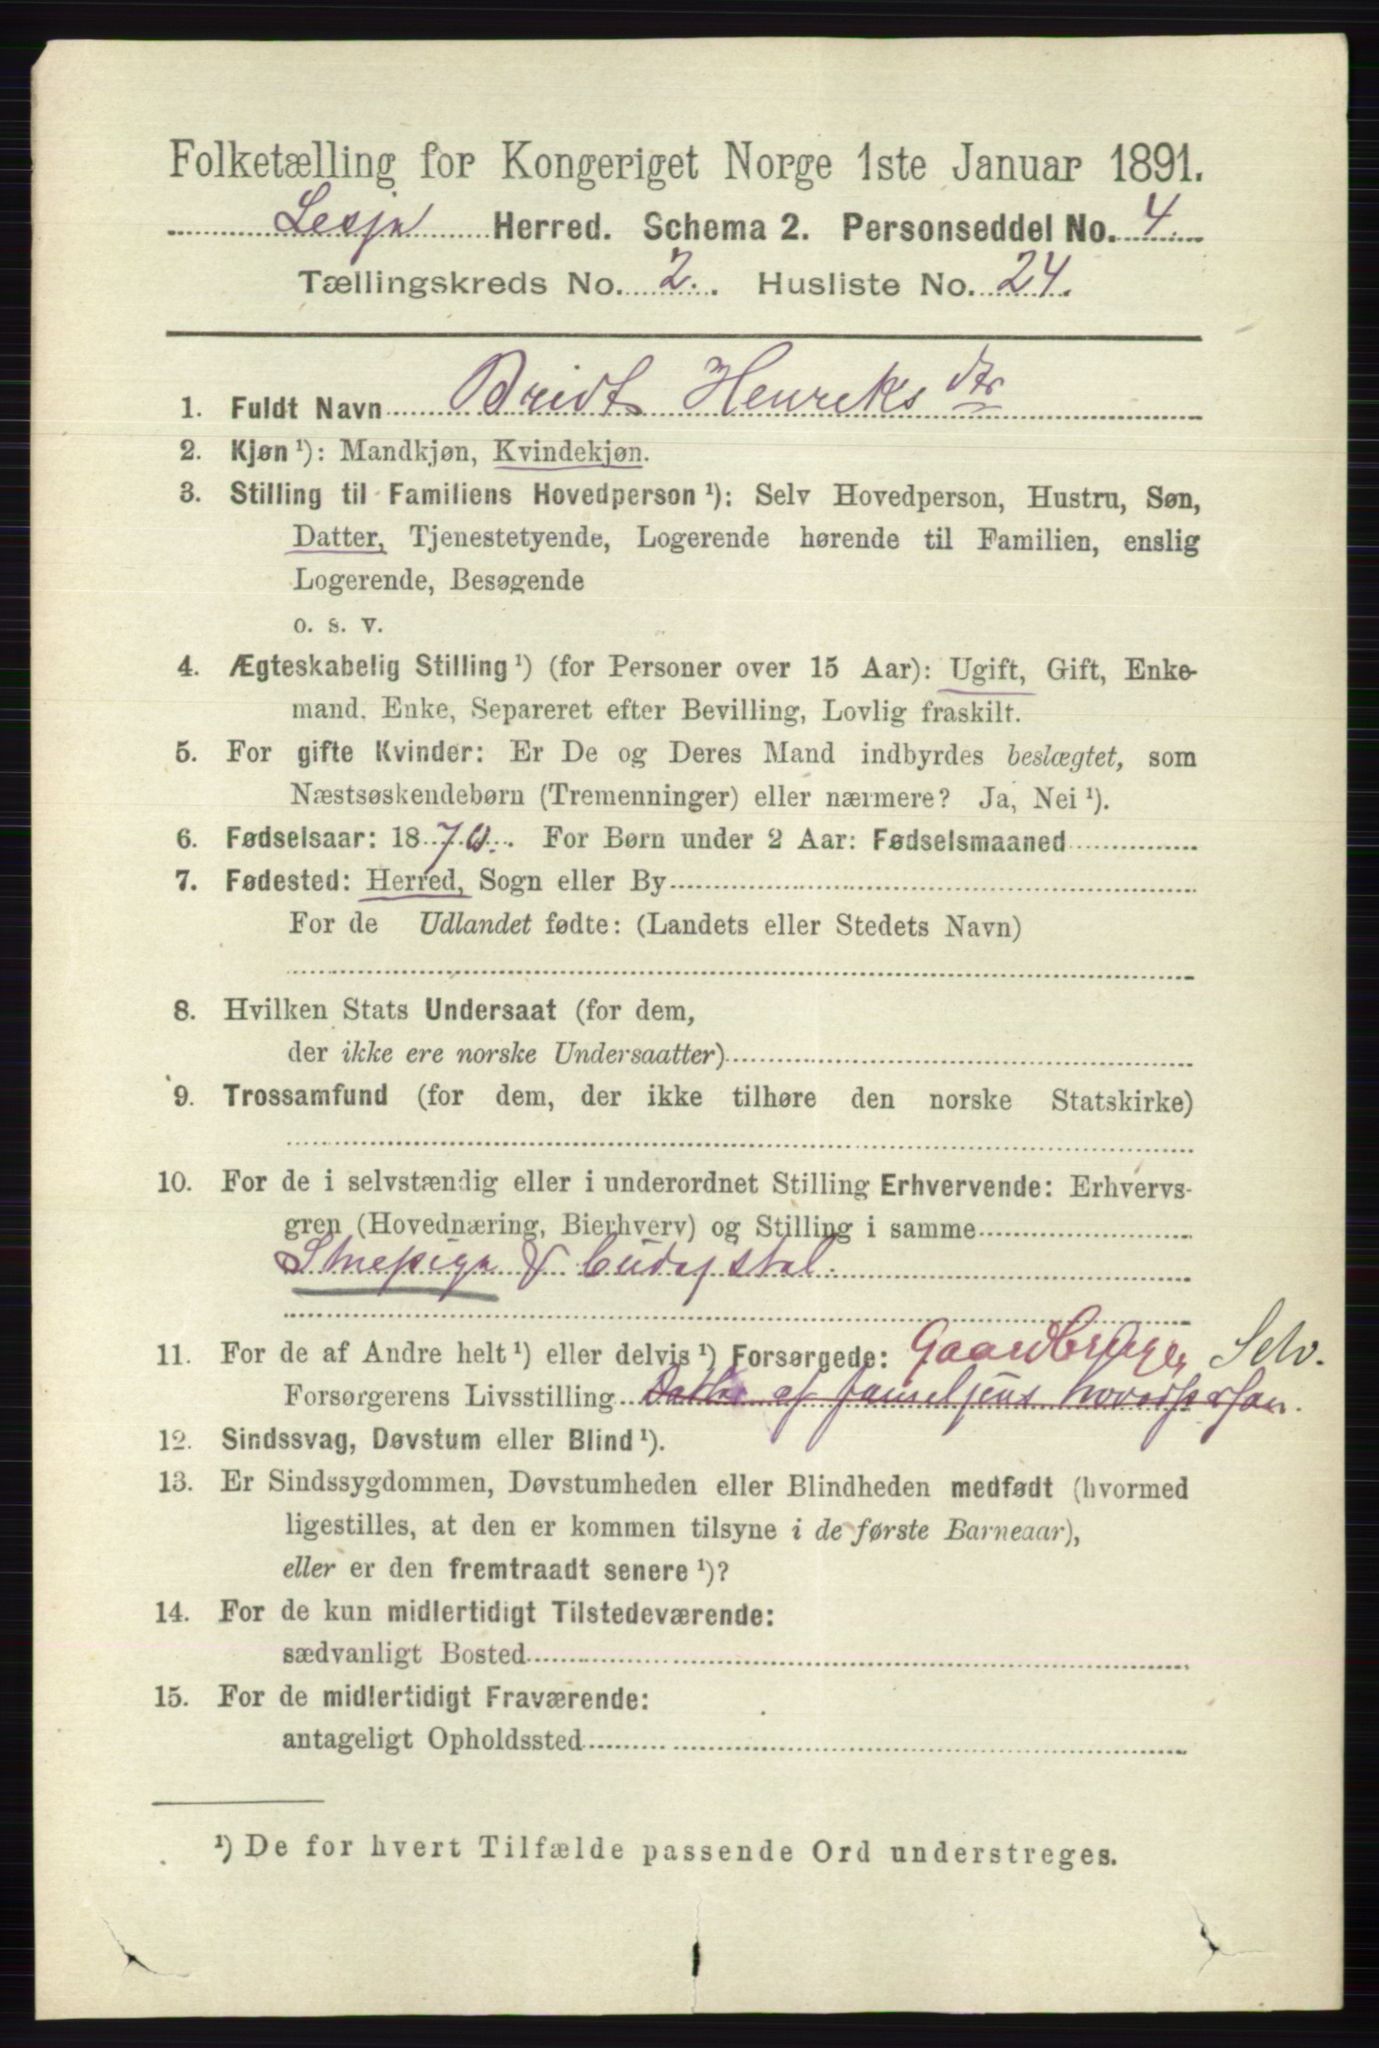 Folketælling for Kongeriget Norge 1ste Januar 1891.
Lesja Herred. Schema 2. Personseddel No. 4.
Tællingskreds No. 2. Husliste No. 24.
1. Fuldt Navn Bridt Henreks dtr
2. Kjøn ¹): Mandkjøn, Kvindekjøn.
3. Stilling til Familiens Hovedperson ¹): Selv Hovedperson, Hustru, Søn,
Datter, Tjenestetyende, Logerende hørende til Familien, enslig
Logerende, Besøgende
o. s. v.
4. Ægteskabelig Stilling ¹) (for Personer over 15 Aar): Ugift, Gift, Enke-
mand, Enke, Separeret efter Bevilling, Lovlig fraskilt.
5. For gifte Kvinder: Er De og Deres Mand indbyrdes beslægtet, som
Næstsøskendebørn (Tremenninger) eller nærmere? Ja, Nei ¹).
6. Fødselsaar: 1870. For Børn under 2 Aar: Fødselsmaaned
7. Fødested: Herred, Sogn eller By
For de Udlandet fødte: (Landets eller Stedets Navn)
8. Hvilken Stats Undersaat (for dem,
der ikke ere norske Undersaatter)
9. Trossamfund (for dem, der ikke tilhøre den norske Statskirke)
10. For de i selvstændig eller i underordnet Stilling Erhvervende: Erhvervs-
gren (Hovednæring, Bierhverv) og Stilling i samme
11. For de af Andre helt ¹) eller delvis ¹) Forsørgede: Gaardbruger Selv.
Forsørgerens Livsstilling Datter af famieljens hovedperson.
12. Sindssvag, Døvstum eller Blind ¹).
13. Er Sindssygdommen, Døvstumheden eller Blindheden medfødt (hvormed
ligestilles, at den er kommen tilsyne i de første Barneaar),
eller er den fremtraadt senere ¹)?
14. For de kun midlertidigt Tilstedeværende:
sædvanligt Bosted
15. For de midlertidigt Fraværende:
antageligt Opholdssted
¹) De for hvert Tilfælde passende Ord understreges.